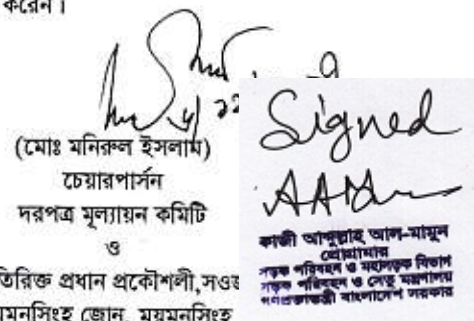 করেন।
(মোঃ মনিরুল ইসলাম)
চেয়ারপার্সন
দরপত্র মূল্যায়ন কমিটি
ও
তিরিক্ত প্রধান প্রকৌশলী,সওজ
য়মনসিংহ জোন, ময়মনসিংহ
Signed
কাজী আব্দুল্লাহ আল-মামুন
প্রোগ্রামার
সড়ক পরিবহন ও মহাসড়ক বিভাগ
সড়ক পরিবহন ও সেতু মন্ত্রণালয়
গণপ্রজাতন্ত্রী বাংলাদেশ সরকার